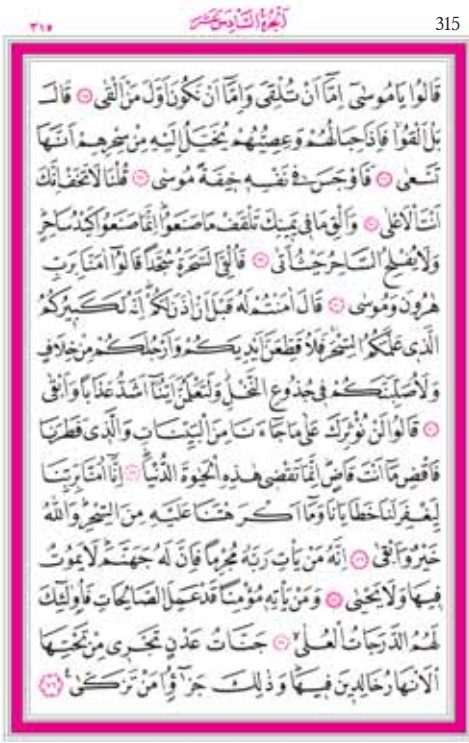 ٣١٥ اَلْجُزْءُ السَّادِسَ عَشَرَ 315
قَالُوا يَامُوسٰٓى اِمَّٓا اَنْ تُلْقِىَ وَاِمَّٓا اَنْ نَكُونَ اَوَّلَ مَنْ اَلْقٰى ﴿٦٥﴾ قَالَ
بَلْ اَلْقُوا فَاِذَا حِبَالُهُمْ وَعِصِيُّهُمْ يُخَيَّلُ اِلَيْهِ مِنْ سِحْرِهِمْ اَنَّهَا
تَسْعٰى ﴿٦٦﴾ فَاَوْجَسَ فٖى نَفْسِهٖ خٖيفَةً مُوسٰى ﴿٦٧﴾ قُلْنَا لَا تَخَفْ اِنَّكَ
اَنْتَ الْاَعْلٰى ﴿٦٨﴾ وَاَلْقِ مَا فٖى يَمٖينِكَ تَلْقَفْ مَا صَنَعُوا اِنَّمَا صَنَعُوا كَيْدُ سَاحِرٍ
وَلَا يُفْلِحُ السَّاحِرُ حَيْثُ اَتٰى ﴿٦٩﴾ فَاُلْقِىَ السَّحَرَةُ سُجَّدًا قَالُٓوا اٰمَنَّا بِرَبِّ
هٰرُونَ وَمُوسٰى ﴿٧٠﴾ قَالَ اٰمَنْتُمْ لَهُ قَبْلَ اَنْ اٰذَنَ لَكُمْ اِنَّهُ لَكَبٖيرُكُمُ
الَّذٖى عَلَّمَكُمُ السِّحْرَ فَلَاُقَطِّعَنَّ اَيْدِيَكُمْ وَاَرْجُلَكُمْ مِنْ خِلَافٍ
وَلَاُصَلِّبَنَّكُمْ فٖى جُذُوعِ النَّخْلِ وَلَتَعْلَمُنَّ اَيُّنَٓا اَشَدُّ عَذَابًا وَاَبْقٰى
﴿٧١﴾ قَالُوا لَنْ نُؤْثِرَكَ عَلٰى مَا جَٓاءَنَا مِنَ الْبَيِّنَاتِ وَالَّذٖى فَطَرَنَا
فَاقْضِ مَٓا اَنْتَ قَاضٍ اِنَّمَا تَقْضٖى هٰذِهِ الْحَيٰوةَ الدُّنْيَا ﴿٧٢﴾ اِنَّٓا اٰمَنَّا بِرَبِّنَا
لِيَغْفِرَ لَنَا خَطَايَانَا وَمَٓا اَكْرَهْتَنَا عَلَيْهِ مِنَ السِّحْرِ وَاللّٰهُ
خَيْرٌ وَاَبْقٰى ﴿٧٣﴾ اِنَّهُ مَنْ يَاْتِ رَبَّهُ مُجْرِمًا فَاِنَّ لَهُ جَهَنَّمَ لَا يَمُوتُ
فٖيهَا وَلَا يَحْيٰى ﴿٧٤﴾ وَمَنْ يَاْتِهٖ مُؤْمِنًا قَدْ عَمِلَ الصَّالِحَاتِ فَاُولٰٓئِكَ
لَهُمُ الدَّرَجَاتُ الْعُلٰى ﴿٧٥﴾ جَنَّاتُ عَدْنٍ تَجْرٖى مِنْ تَحْتِهَا
الْاَنْهَارُ خَالِدٖينَ فٖيهَا وَذٰلِكَ جَزٰٓؤُا مَنْ تَزَكّٰى ﴿٧٦﴾